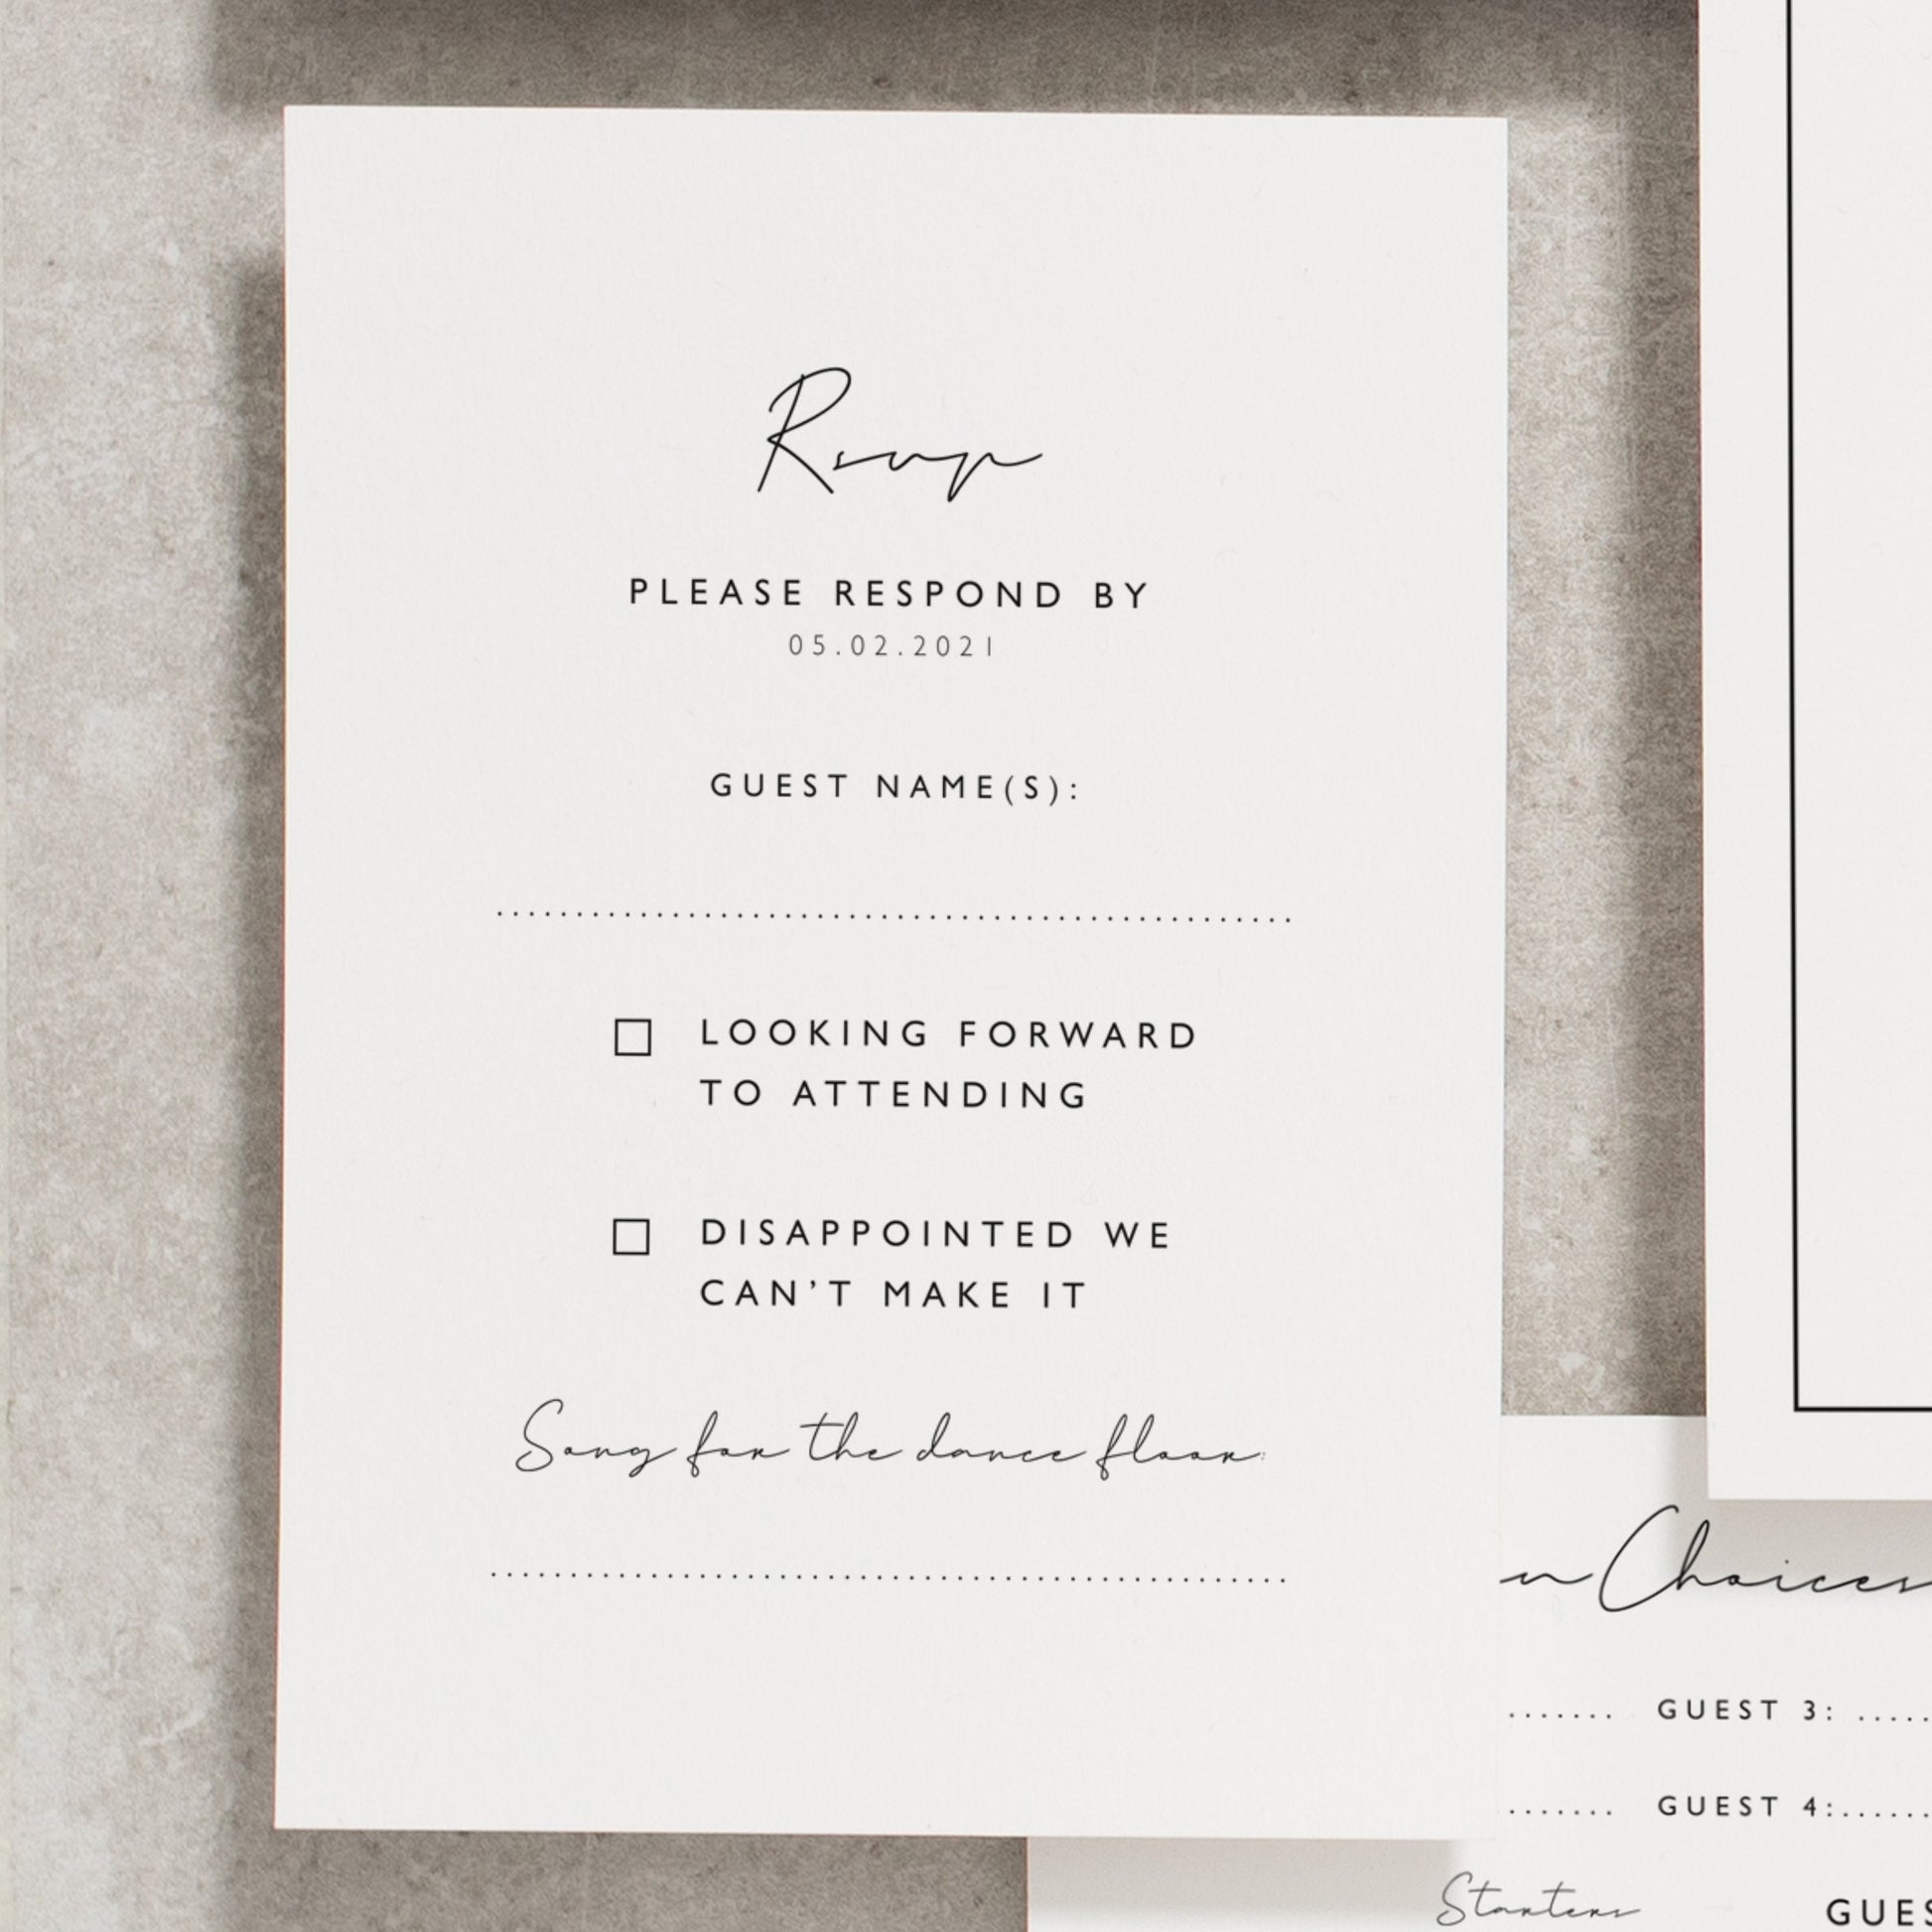 Rsvp
PLEASE RESPOND BY
05.02.2021
GUEST NAME(S):
LOOKING FORWARD
TO ATTENDING
DISAPPOINTED WE
CAN'T MAKE IT
Song for the dance floor:
Choices
GUEST 3:
GUEST 4:
Starters